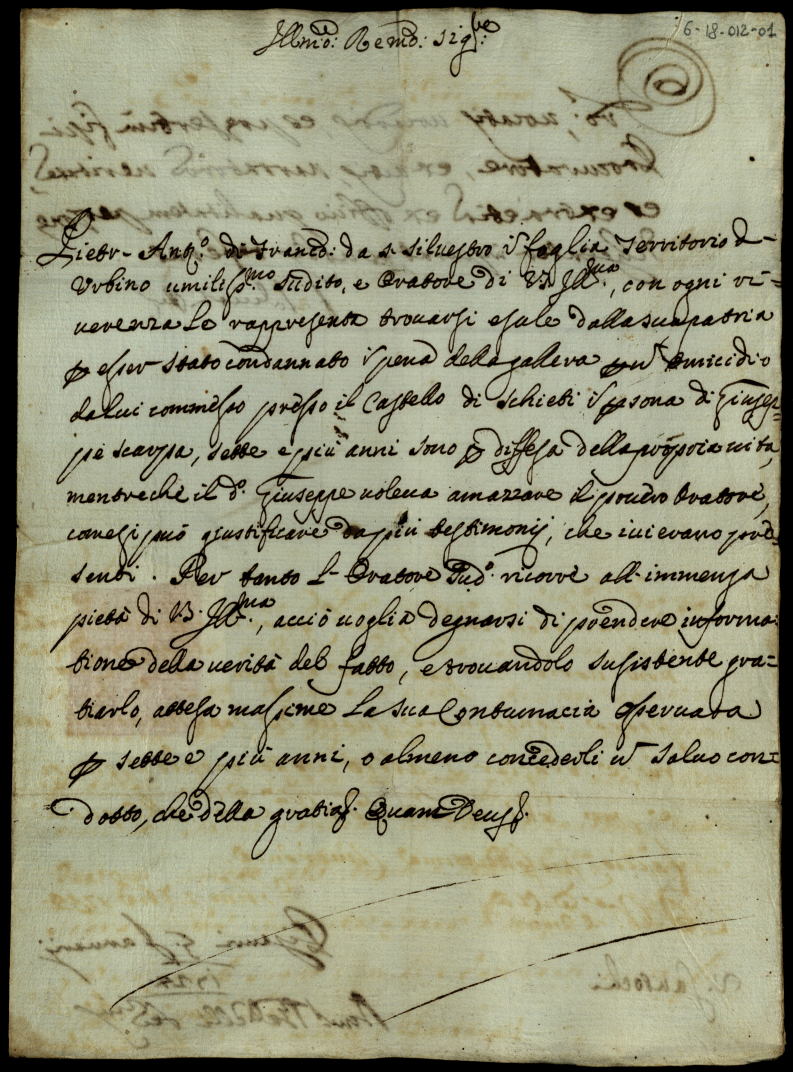 6-18-012-01
Illmo: Remo: Sigre:
Pietr-Anto. di Franco: da S. Silvestro i feglia Territorio d-
Urbino umilissmo. sudito, e Oratore di V.S. Illma., con ogni ri=
verenza Le rappresenta trovarsi esule dalla sua patria
p esser stato condannato i pena della gallera p un omicidio
da lui commesso presso il Castello di Schieti i psona di Giusep-
pe Scarpa, sette e più anni sono p diffesa della propria vita,
mentreche il do. Giuseppe voleva amazzare il povero Oratore,
come si può giustificare da più testimonij, che ivi erano pre=
senti. Per tanto l- Oratore Sudo. ricorre all-immensa
pietà di V.S. Illma., acciò voglia degnarsi di prendere informa-
tione della verità del fatto, e trovandolo susistente gra=
tiarlo, attesa massime la sua Contumacia osservata
p sette e più anni, o almeno concederli un salvo con=
dotto, che della gratia. Quam Deus.